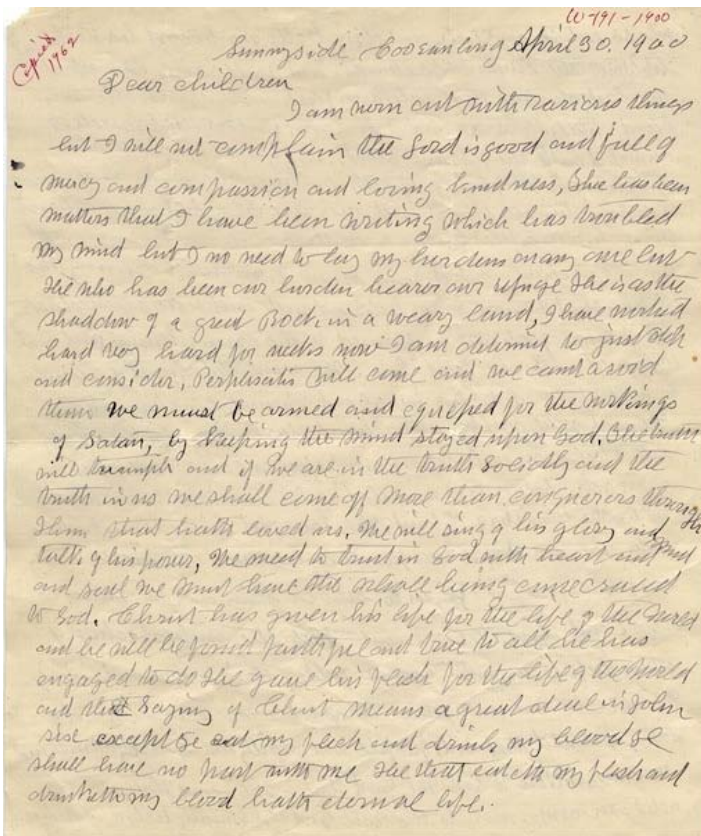 W-191-1900
Copied 1962
Sunnyside Cooranbong April 30. 1900
Dear children
I am worn out with various things
but I will not complain the Lord is good and full of
mercy and compassion and loving kindness, There has been
matters that I have been writing which has troubled
my mind but I no need to lay my burdens on any one but
He who has been our burden bearer our refuge He is as the
shadow of a great Rock in a weary land, I have worked
hard very hard for weeks now I am determined to just stop
and consider, Perplexities will come and we cant avoid
them we must be armed and equiped for the workings
of Satan, by keeping the mind stayed upon God. The truth
will triumph and if we are in the truth solidly and the
truth in us we shall come off more than conquerors through
Him that hath loved us. We will sing of his glory and
talk of his power, We need to trust in God with heart and mind
and soul we must have the whole being consecrated
to God. Christ has given his life for the life of the World
and he will be found faithful and true to all he has
engaged to do He gave his flesh for the life of the World
and the saying of Christ means a great deal in John
six except ye eat my flesh and drink my blood ye
shall have no part with me He that eateth my flesh and
drinketh my blood hath eternal life.